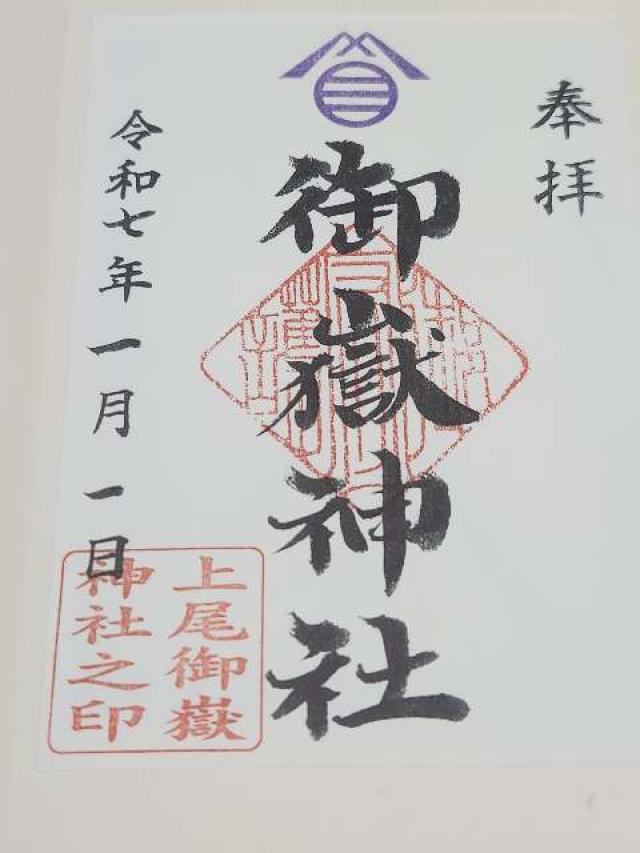 奉拝
御嶽神社
令和七年一月一日
上尾御嶽
神社之印